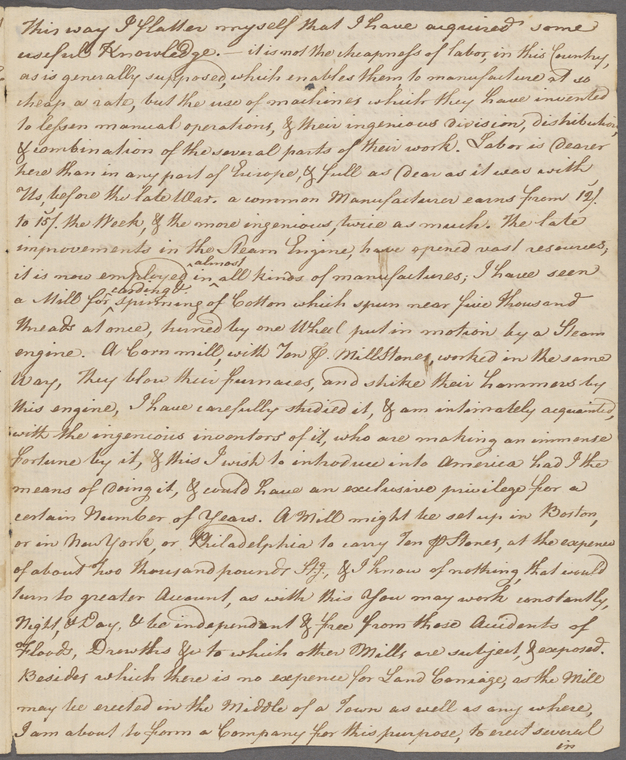 This way I flatter myself that I have acquired some
useful Knowledge. — it is not the cheapness of labor, in this Country,
as is generally supposed, which enables them to manufacture at so
cheap a rate, but the use of machines which they have invented
to lessen manual operations, & their ingenious division, distribution,
& combination of the several parts of their work. Labor is dearer
here than in any part of Europe, & full as dear as it was with
Us, before the late War. a common Manufacturer earns from 12/.
to 15/. the Week, & the more ingenious, twice as much. The late
improvements in the Steam Engine, have opened vast resources,
it is now employed in ^almost^ all kinds of manufactures; I have seen
a Mill for ^carding &^ spinning of Cotton which spun near five thousand
threads at once, turned by one Wheel put in motion by a Steam
engine. A Corn mill, with Ten pr. Mill Stones, worked in the same
Way, they blow their furnaces, and strike their hammers by
this engine, I have carefully studied it, & am intimately acquainted,
with the ingenious inventors of it, who are making an immense
fortune by it, & this I wish to introduce into America had I the
means of doing it, & could have an exclusive privilege for a
certain Number of Years. A Mill might be set up in Boston,
or in New York, or Philadelphia to carry Ten pr Stones, at the expence
of about two thousand pounds Stg, & I know of nothing, that would
turn to greater Account, as with this You may work constantly,
Night, & Day, & be independant & free from those Accidents of
Floods, Drowths &c to which other Mills, are subject, & exposed.
Besides which there is no expence for Land Carriage, as the Mill
may be erected in the Middle of a Town as well as any where,
I am about to form a Company for this purpose, to erect several
in